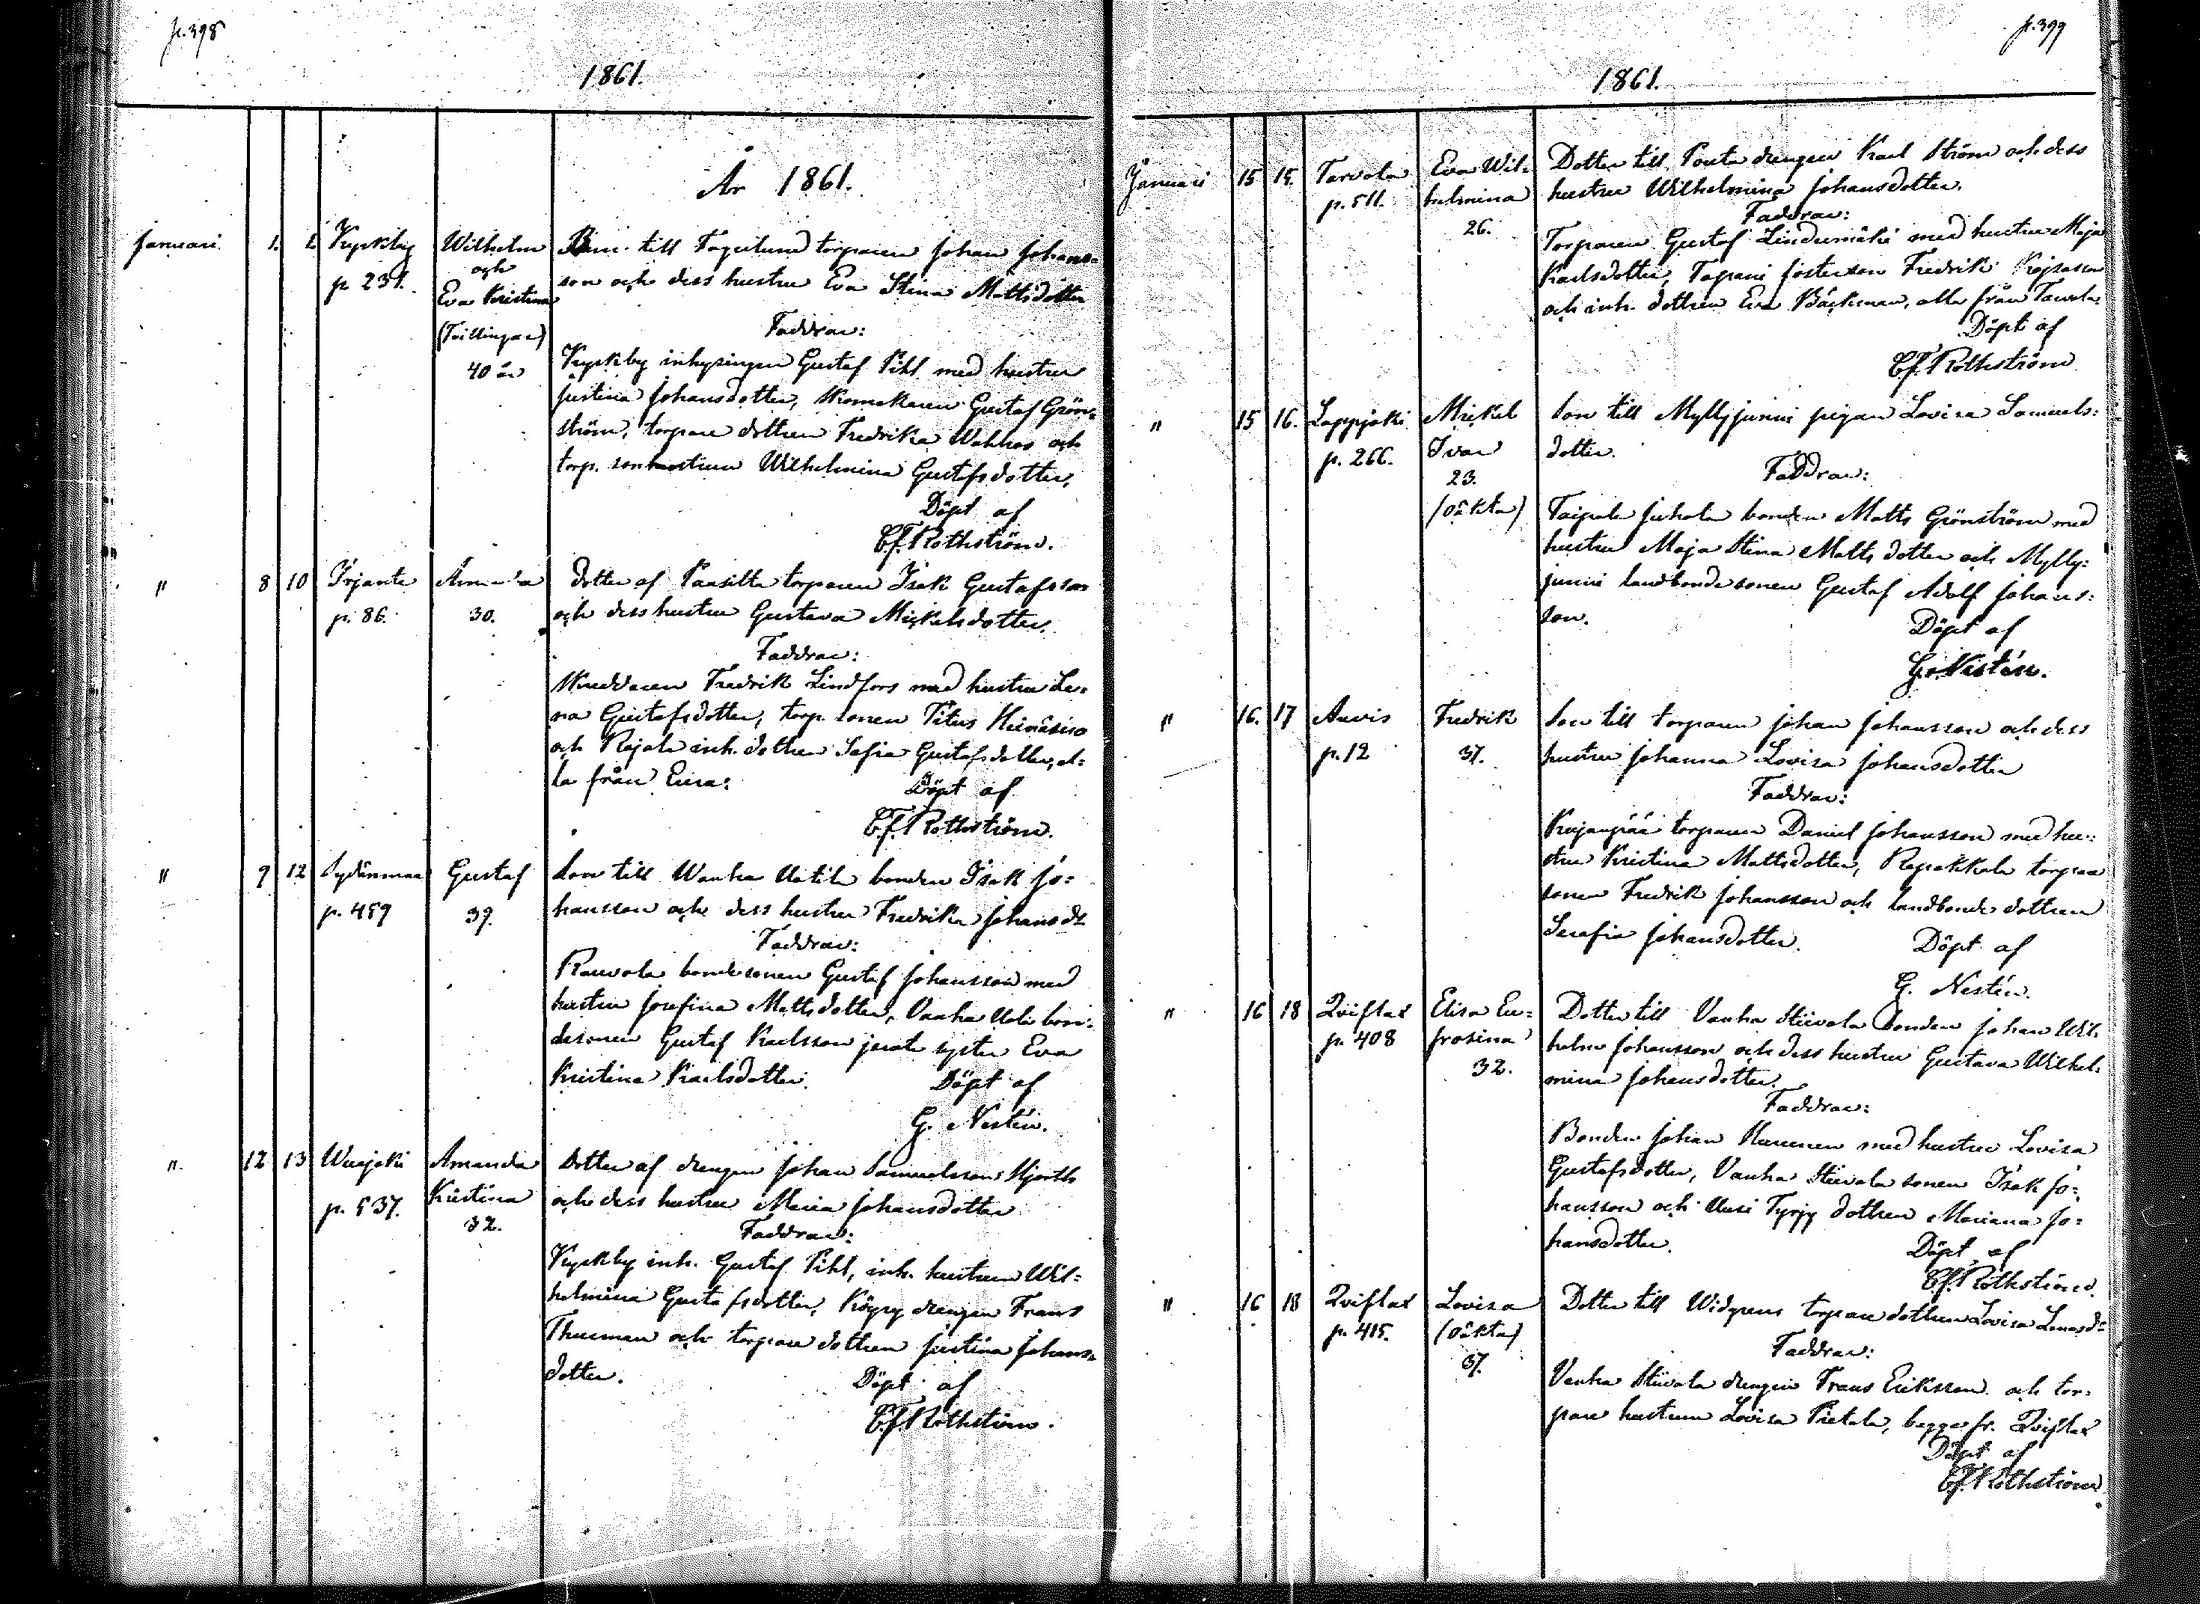 p. 398
1861.
År 1861.
Januari 1. 2. Kyrkby Wilhelm Barn till Fagerlund torparen Johan Johans-
p. 231. och son och dess hustru Eva Stina Mattsdotter
Eva Kristina
(Tvillingar) Faddrar:
40 år Kyrkby inhysingen Gustaf Pihl med hustru
Justina Johansdotter, Skomakaren Gustaf Grön-
ström, torpare dottren Fredrika Wahlroos och
torp. sonhustrun Wilhelmina Gustafsdotter.
Döpt af
C.J. Rothström.
" 8 10 Irjanta Amanda Dotter af Paasilta torparen Isak Gustafsson
p. 86. 30. och dess hustru Gustava Mickelsdotter.
Faddrar:
Skreddaren Fredrik Lindfors med hustru Le-
na Gustafsdotter, torp. sonen Titus
och Rajala inh. dottren Sofia Gustafsdotter, al-
la från Eura:
Döpt af
C.J. Rothström.
" 9 12 Sydänmaa Gustaf Son till Wanha Uotila bonden Isak Jo-
p. 459 39. hansson och dess hustru Fredrika Johansdr
Faddrar:
Rauvola bondesonen Gustaf Johansson med
hustru Josefina Mattsdotter, Vanha Uoti bon-
desonen Gustaf Karlsson jemte syster Eva
Kristina Karlsdotter. Döpt af
G. Nestén.
" 12 13 Wuojoki Amanda Dotter af drengen Johan Samuelsson Hjorth
p. 537. Kristina och dess hustru Maria Johansdotter
32.
Faddrar:
Kyrkby inh. Gustaf Pihl, inh. hustrun Wil-
helmina Gustafsdotter, Köyry drengen Frans
Thurman och torpare dottren Justina Johans-
dotter. Döpt af
C.J. Rothström.
p. 399
1861.
Januari 15 15. Tarvola Eva Wil- Dotter till Panta drengen Karl Ström och dess
p. 511. helmina hustru Wilhelmina Johansdotter.
26. Faddrar:
Torparen Gustaf Lindumäki med hustru Maja
Karlsdotter, Tapani fosterson Fredrik
och inh. dottren Eva Bäckman, alla från Tarvola.
Döpt af
C.J. Rothström
" 15 16. Lappijoki Mickel Son till Myllyjunni pigan Lovisa Samuels-
p. 266. Ivar dotter.
23. Faddrar:
(oäkta) Taipale Juhola bonden Matts Grönström med
hustru Maja Stina Mattsdotter och Mylly-
junni landbonde sonen Gustaf Adolf Johans-
son. Döpt af
G. Nestén.
" 16. 17 Auvis Fredrik Son till torparen Johan Johansson och dess
p. 12 37. hustru Johanna Lovisa Johansdotter
Faddrar:
Krojanpää torparen Daniel Johansson med hu-
stru Kristina Mattsdotter, Rapakkala torpare
sonen Fredrik Johansson och landbonde dottren
Serafia Johansdotter. Döpt af
G. Nestén.
" 16 18 Qviflax Elisa Eu- Dotter till Vanha Stiivala bonden Johan Wil-
p. 408 frosina helm Johansson och dess hustru Gustava Wilhel-
32. mina Johansdotter.
Faddrar:
Bonden Johan Hurunen med hustru Lovisa
Gustafsdotter, Vanha Stiivala sonen Isak Jo-
hansson och Uusi Tyrjy dottren Mariana Jo-
hansdotter. Döpt af
C.J. Rothström.
" 16 18 Qviflax Lovisa Dotter till Widgrens torpare dottren Lovisa Lenasdr
p. 415. (oäkta)
37. Faddrar:
Vanha Stiivala drengen Frans Eriksson och tor-
pare hustrun Lovisa Pietala, begge fr. Qviflax
Döpt af
C.J. Rothström